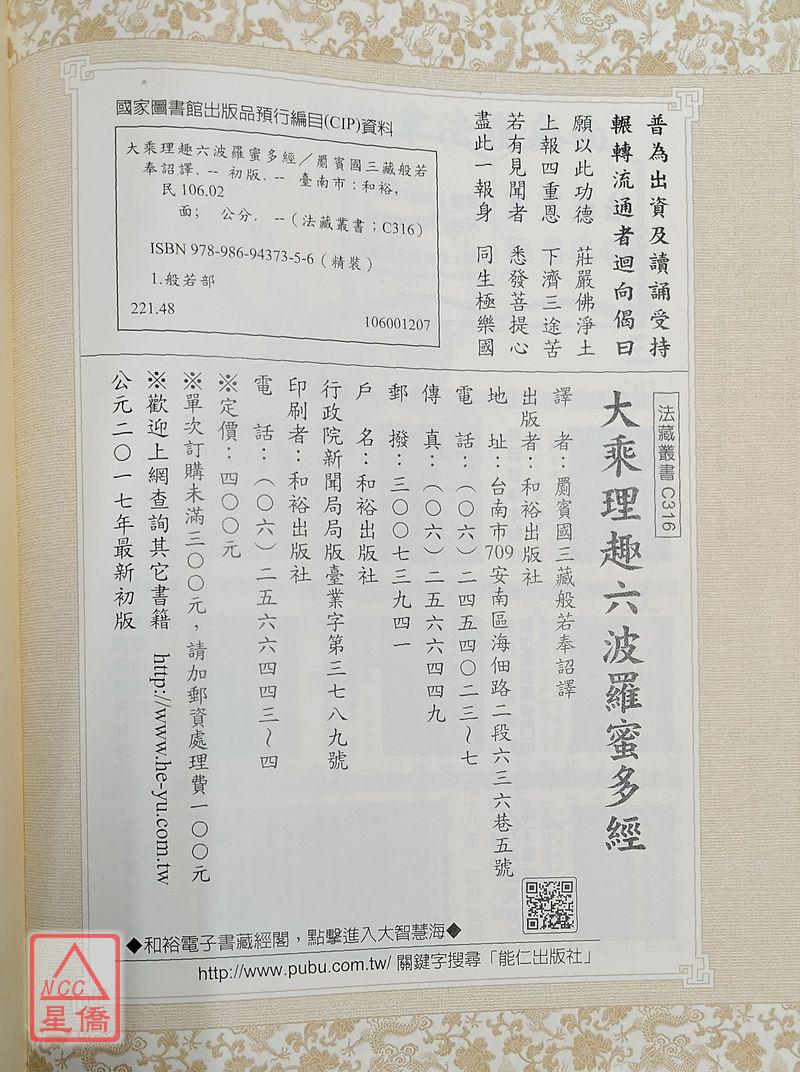 普為出資及讀誦受持
輾轉流通者迴向偈曰
願以此功德　莊嚴佛淨土
上報四重恩　下濟三途苦
若有見聞者　悉發菩提心
盡此一報身　同生極樂國
國家圖書館出版品預行編目(CIP)資料
大乘理趣六波羅蜜多經／罽賓國三藏般若
奉詔譯. -- 初版. -- 臺南市：和裕,
民 106.02
面；　公分. --（法藏叢書；C316）
ISBN 978-986-94373-5-6（精裝）
1.般若部
221.48
106001207
法藏叢書 C316
大乘理趣六波羅蜜多經
譯　者：罽賓國三藏般若奉詔譯
出版者：和裕出版社
地　址：台南市709安南區海佃路二段六三六巷五號
電　話：（０六）二四五四０二三～七
傳　真：（０六）二五六六四四九
郵　撥：三００七三九四一
戶　名：和裕出版社
行政院新聞局局版臺業字第三七八九號
印刷者：和裕出版社
電　話：（０六）二五六六四四三～四
※定價：四００元
※單次訂購未滿三００元，請加郵資處理費一００元
※歡迎上網查詢其它書籍　http://www.he-yu.com.tw
公元二０一七年最新初版
◆和裕電子書藏經閣，點擊進入大智慧海◆
http://www.pubu.com.tw/ 關鍵字搜尋「能仁出版社」
NCC
星僑